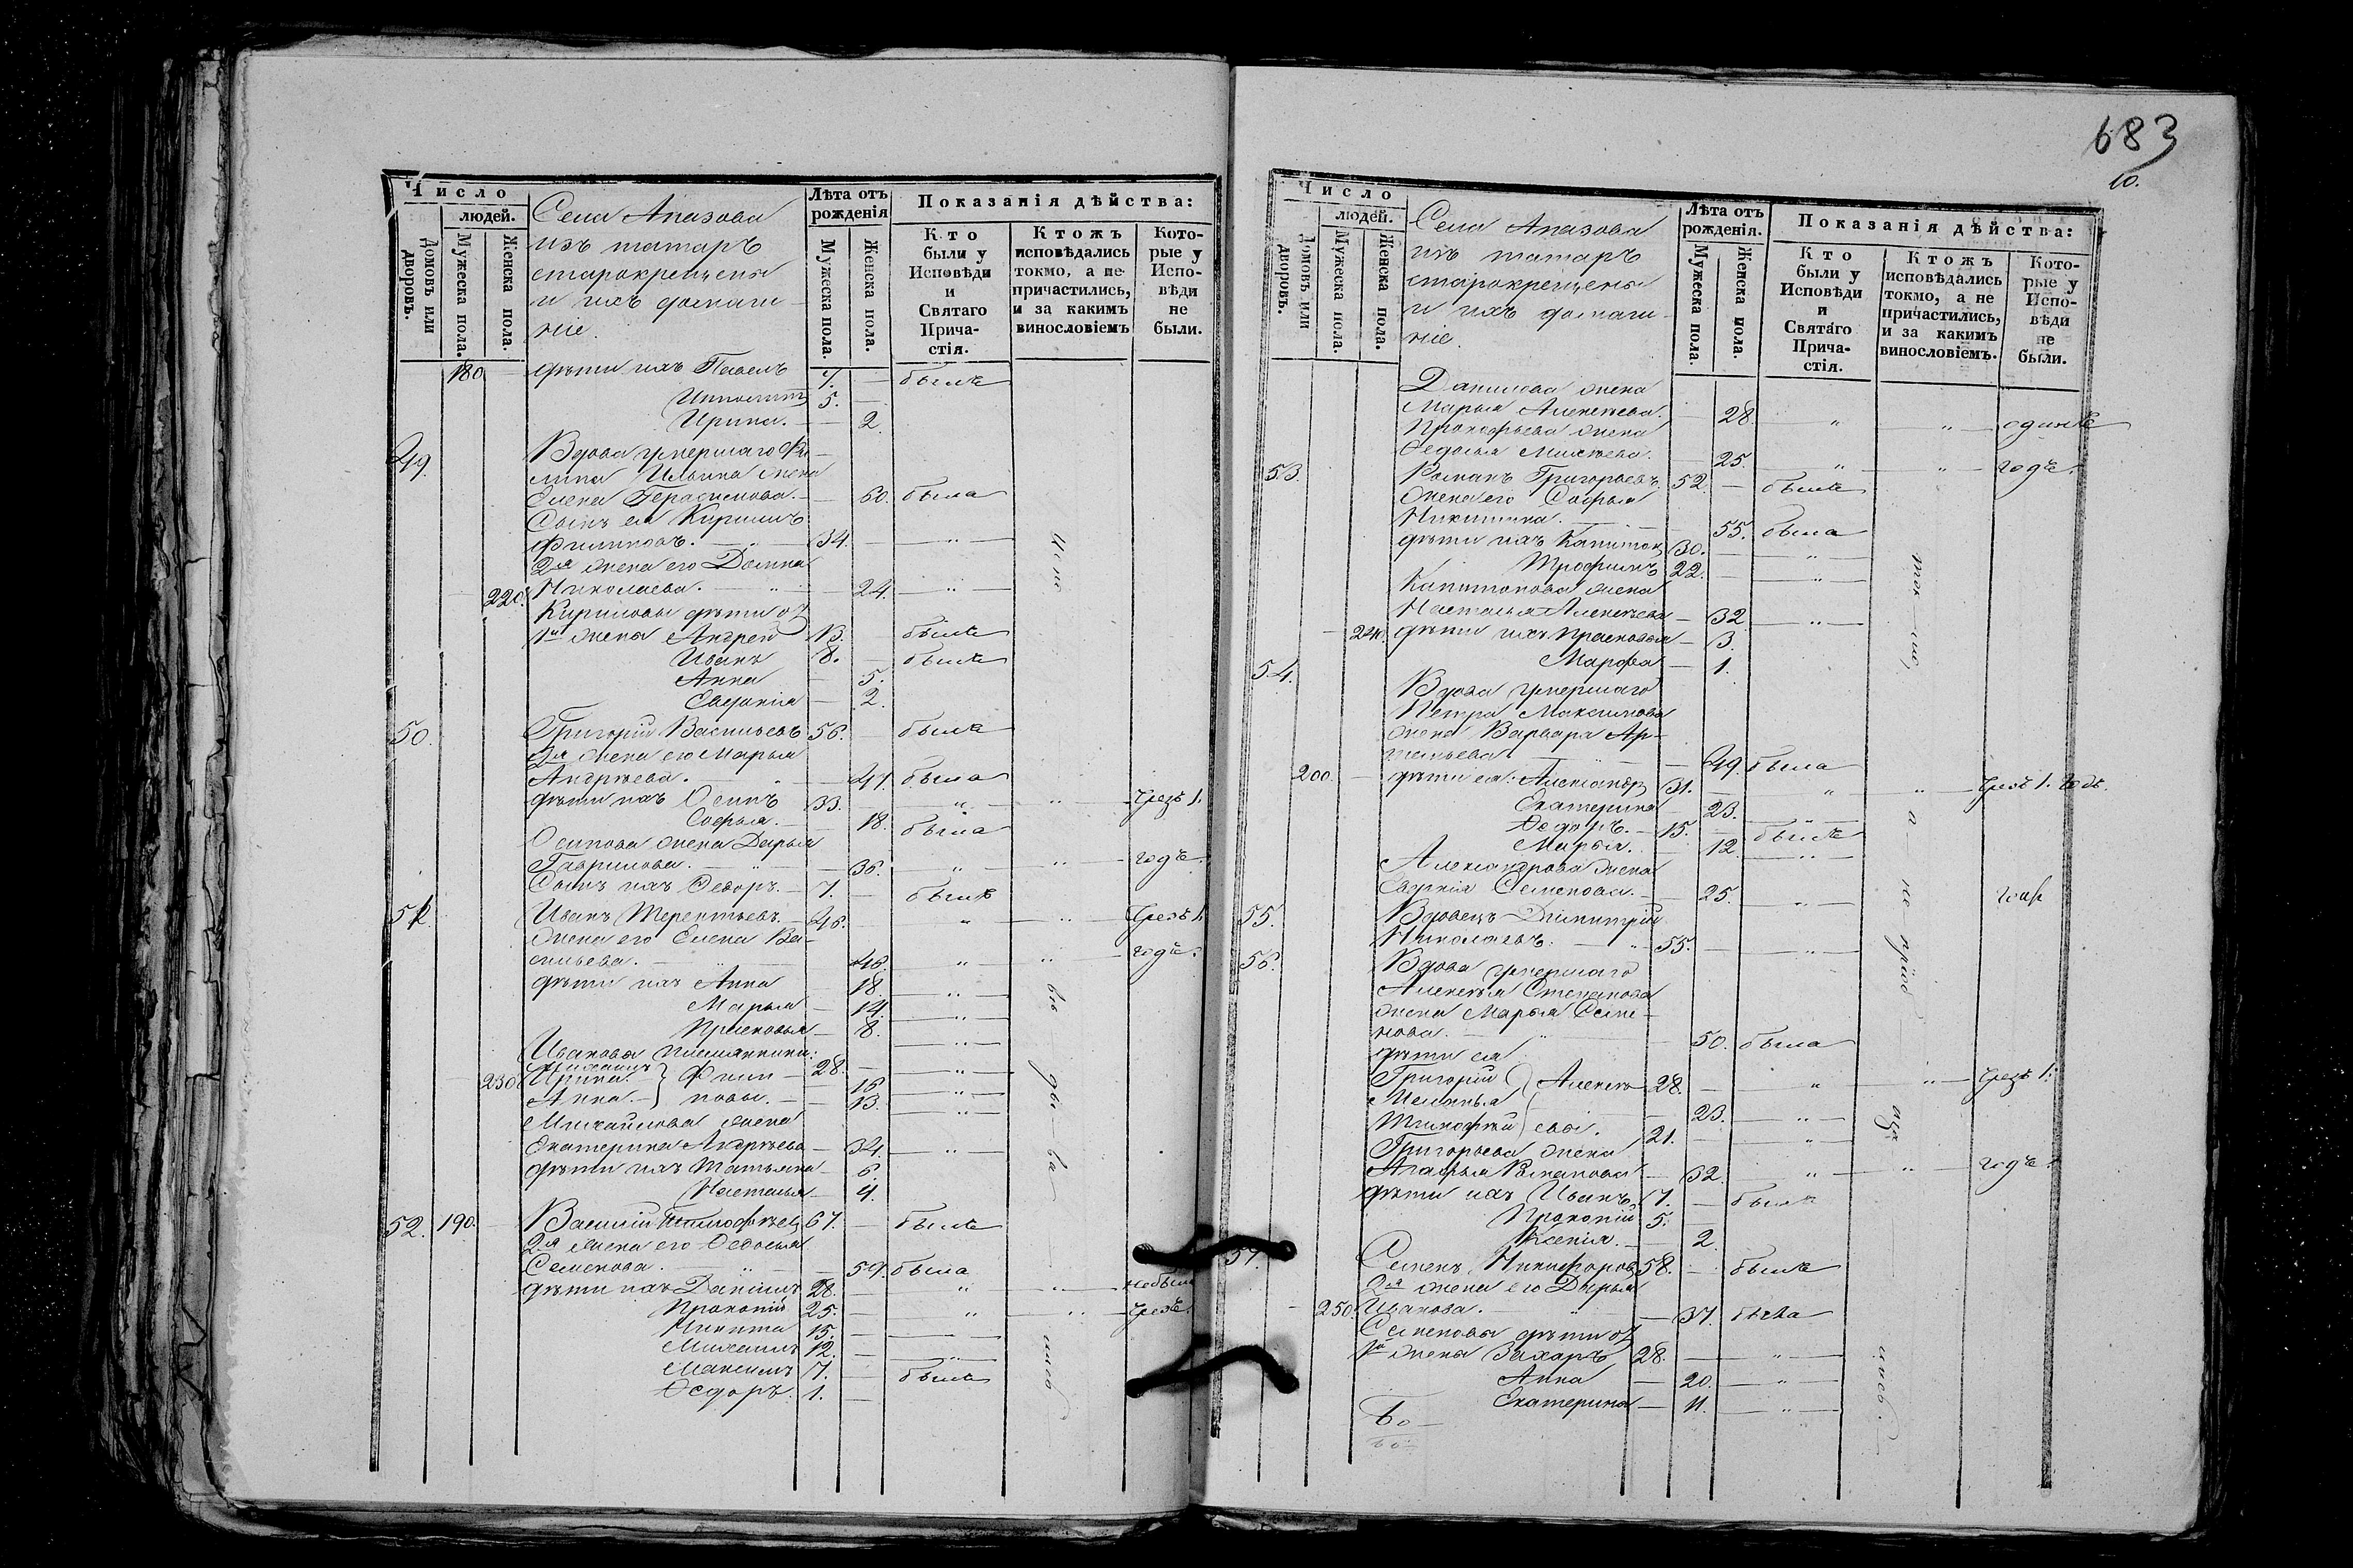 683
10.
Число
людей.
Домовъ или дворовъ.
Мужеска пола.
Женска пола.
Села Апазова
изъ татаръ
старокрещены
и ихъ домаш-
ніе.
Лѣта отъ рожденія
Мужеска пола.
Женска пола.
Показанія дѣйства:
Кто были у Исповѣди и Святаго Прича-стія.
Ктожъ исповѣдались токмо, а не причастились, и за какимъ винословіемъ
Кото-рые у Испо-вѣди не были.
180 дѣти ихъ Павелъ 7. — былъ
Ипполитъ 5. —
Ирина. — 2.
49. Вдова умершаго Фи-
липа Ильина жена
Елена Герасимова. — 60. была
Сынъ ея Кирилъ
Филиповъ. — 34. — „
2я жена его Домна
220. Николаева. — 24. — „
Кириловы дѣти отъ
1й жены Андрей 13. — былъ
Иванъ 8. — былъ
Анна — 5.
Евдокія — 2.
50. Григорій Васильевъ 56. — былъ
2я жена его Марья
Андрѣева. — 41. была
дѣти ихъ Осипъ 33. — „ „ чрезъ 1.
Софья. — 18. была
Осипова жена Дарья
Гаврилова. — 36. „ „ годъ.
Сынъ ихъ Ѳедоръ. — 7. — былъ
51. Иванъ Терентьевъ. — 46. — „ „ чрезъ 1.
жена его Елена Ва-
сильева. — 46. „ „ годъ.
дѣти ихъ Анна — 18. „
Марья — 14. „
Прасковья — 8. „
Ивановы племянники:
Михаилъ 28. — „
230. Ирина. } Фили- — 16. „
Анна. } повы. — 13. „
Михайлова жена
Екатерина Андрѣева — 34. „
дѣти ихъ Татьяна — 6.
Настасья — 4.
52. 190. Василій Тимофѣевъ 67. — былъ
2я жена его Ѳедосья
Семенова. — 59. была
дѣти ихъ Даніилъ 28. — „ „ небыли
Прокопій 25. — „ „ чрезъ
Никита 15. —
Михаилъ 12. — „
Максимъ 7. — былъ
Ѳедоръ. 1. —
Число
людей.
Домовъ или дворовъ.
Мужеска пола.
Женска пола.
Села Апазова
изъ татаръ
старокрещены
и ихъ домаш-
ніе.
Лѣта отъ рожденія.
Мужеска пола.
Женска пола.
Показанія дѣйства:
Кто были у Исповѣди и Святаго Прича-стія.
Ктожъ исповѣдались токмо, а не причастились, и за какимъ винословіемъ.
Кото-рые у Испо-вѣди не были.
Данилова жена
Марья Алексѣева. — 28. „ „ одинъ
Прокофьева жена
Ѳедосья Михѣева. — 25. „ „ годъ.
53. Романъ Григорьевъ. 52. — былъ
жена его Софья
Никитина. — 55. была
дѣти ихъ Капитонъ 30. — „
Трофимъ 22. — „
Капитонова жена
Настасья Алексѣева — 32. „
240. дѣти ихъ Прасковья — 3.
Марфа — 1.
54. Вдова умершаго
Петра Максимова
жена Варвара Ар-
— 49. была
200. дѣти ея: Александръ 31. — „ „ чрезъ 1. годъ.
Екатерина — 23. „
Ѳедоръ. — 15. — былъ
Марья. — 12. „
Александрова жена
Евдокія Семенова. — 25. „
55. Вдовецъ Димитрій
Николаевъ. — 55. — „
56. Вдова умершаго
Алексѣя Степанова
жена Марья Семе-
нова. — 50. была
дѣти ея
Григорій } Алексѣ- 28. — „ „ чрезъ 1.
Меланья — 23. „
Тимофѣй } евы. 21. — „
Григорьева жена
Агафья Романова — 32. „ „ годъ.
дѣти ихъ Иванъ 7. — былъ
Прокопій 5. —
Ксенія. — 2.
57. Семенъ Никифоровъ 58. — былъ
2я жена его Дарья
250. Иванова. — 37. была
Семеновы дѣти отъ
1й жены Захаръ 28. — „
Анна — 20. „
Екатерина — 11. „